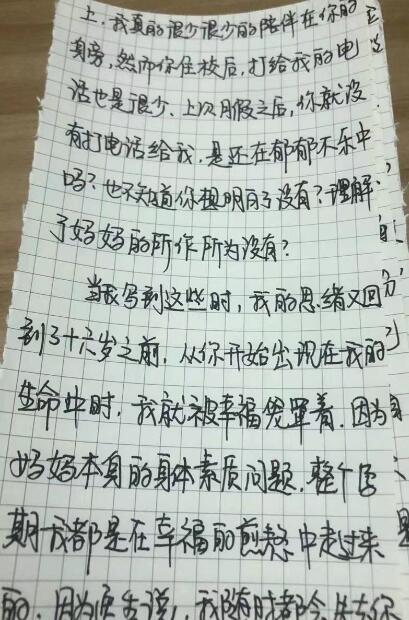 上，我真的很少很少的陪伴在你的
身旁，然而你住校后，打给我的电
话也是很少、上次月假之后，你就没
有打电话给我，是还在郁郁不乐中
吗？也不知道你想明白了没有？理解
了妈妈的所作所为没有？
当我写到这些时，我的思绪又回
到了十六岁之前，从你开始出现在我的
生命中时，我就被幸福笼罩着，因为
妈妈本身的身体素质问题，整个孕
期我都是在幸福的煎熬中走过来
的，因为医生说，我随时都会失去你